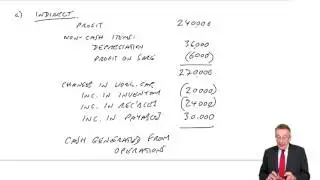 a) INDIRECT
PROFIT 240000
NON-CASH ITEMS:
DEPRECIATION 36000
PROFIT ON SALE (6000)
270000
CHANGES IN WORK. CAP.
INC. IN INVENTORY (20000)
INC. IN REC'BLES (24000)
INC. IN PAYABLES 30.000
CASH GENERATED FROM
OPERATIONS